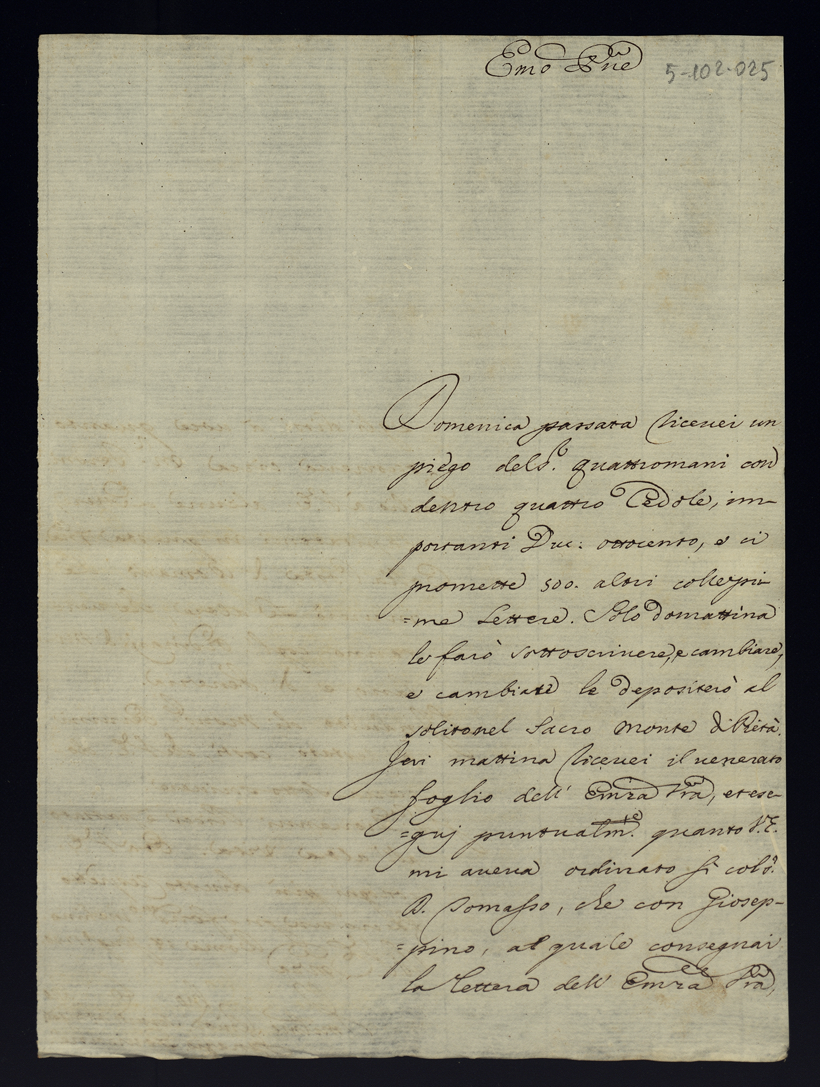 Emo Pne
5-102-025
Domenica passata ricevei un
piego del S.r Quattromani con
dentro quattro Cedole, im-
portanti Duc: ottocento, e ci
promette 500. altri colle pri-
=me Lettere. Solo domattina
le farò sottoscrivere, e cambiare,
e cambiate le depositerò al
solito nel Sacro Monte di Pietà.
Jeri mattina ricevei il venerato
foglio dell' Emza Vra, et ese-
=guj puntualm.te quanto V.E.
mi aveva ordinato sì col S.
D. Tomasso, che con Giosep-
=pino, al quale consegnai
la lettera dell' Emza Vra,